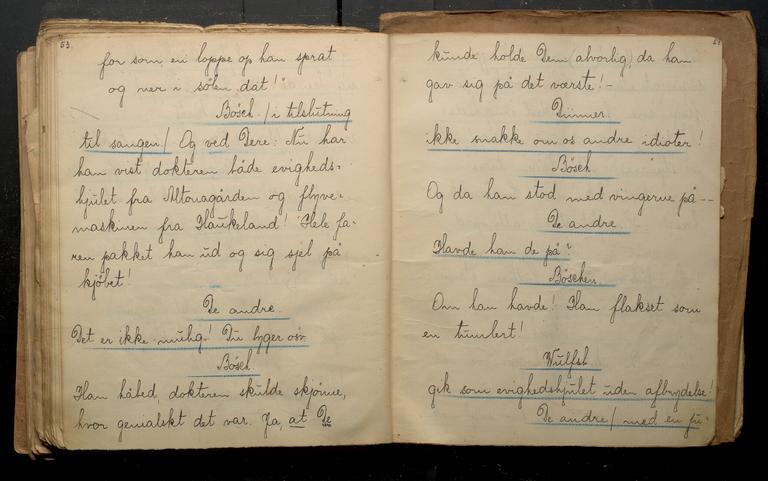 53.
for som en loppe op han sprat
og ner i sølen dat!"
Bösch / i tilslutning
til sangen / Og ved Dere: Nu har
han vist dokteren både evigheds=
hjulet fra Altonagården og flyve=
maskinen fra Haukeland! Hele fa=
ren pakket han ud og sig sjel på
kjøbet!
De andre.
Det er ikke mulig! Du lyger osv.
Bösch
Han håbed, dokteren skulde skjönne,
hvor genialskt det var. Ja, at De
kunde holde Dem alvorlig, da han
gav sig på det værste!-
Dünner
ikke snakke om os andre idioter!
Bösch
Og da han stod med vingerne på--
De andre
Havde han de på?
Böschen.
Om han havde! Han flakset som
en tumlert!
Wulfsb
gik som evighedshjulet uden afbrydelse!
De andre / med en ju-